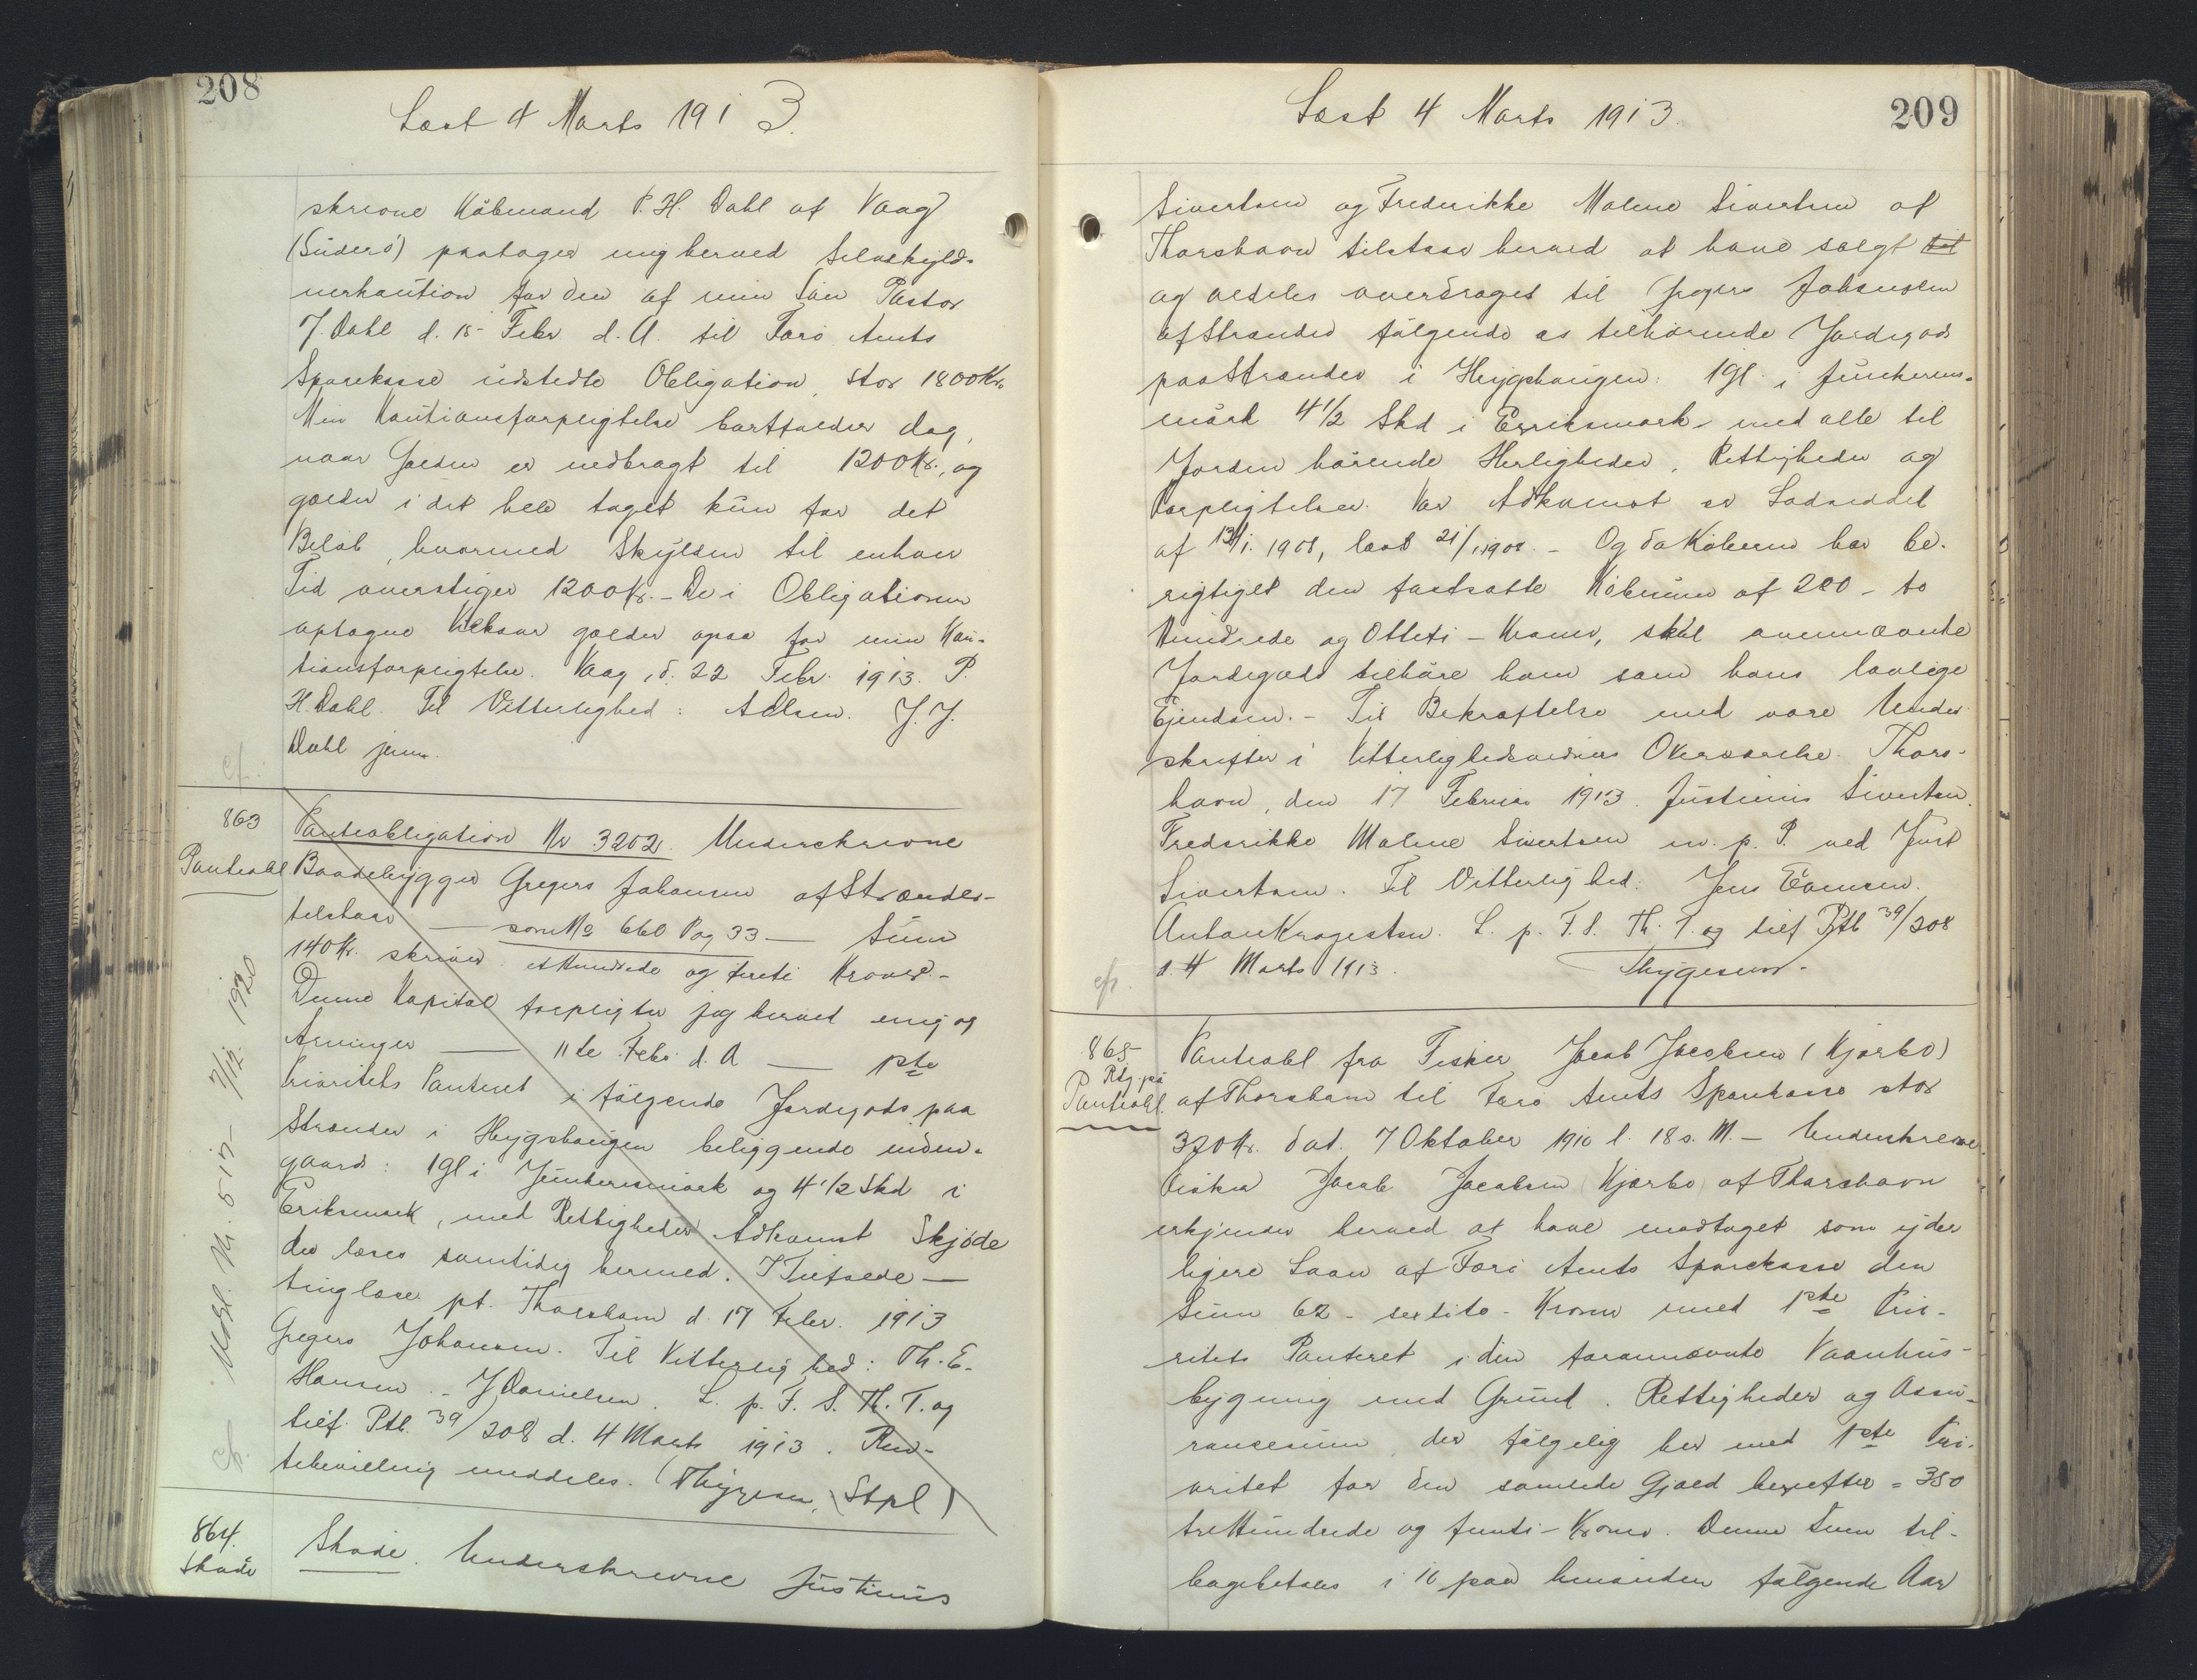 208
Læst 4 Marts 1913.
skrevne Købmand P. H. Dahl af Vaag
(Suderø) paatager mig herved Selvskyld-
nerkaution for den af min Søn Pastor
J. Dahl d. 15 Febr d. A. til Færø Amts
Sparekasse udstedte Obligation, stor 1800 Kr.
Min Kautionsforpligtelse bortfalder dog,
naar Gælden er nedbragt til 1200 Kr., og
gælder i det hele taget kun for det
Beløb, hvormed Skylden til enhver
Tid overstiger 1200 Kr. - De i Obligationen
optagne Vilkaar gælder ogsaa for min Kau-
tionsforpligtelse. Vaag, d. 22 Febr. 1913. P.
H. Dahl. Til Vitterlighed: A Olsen. J. J.
Dahl jun.
cf.
863
Panteobl
Panteobligation Nr 3202. Underskrevne
Baadebygger Gregers Johansen af Strænder-
tilstaar — som No 660 Pag 33 — Sum
140 Kr. skriver et Hundrede og fireti Kroner.-
Denne Kapital forpligter jeg herved mig og
Arvinger — 11te Febr. d. A — 1ste
Prioritets Panteret i følgende Jordegods paa
Strænder i Heygshaugen beliggende inden-
gaards: 1 Gl i Junkerensmørk og 4 1/2 Skd i
Eriksmørk, med Rettigheder Adkomst Skjøde
der læses samtidig hermed. I Tilfælde —
tinglæse pt. Thorshavn d. 17 Febr. 1913
Gregers Johansen. Til Vitterlighed: Th. E.
Hansen. - J Danielsen. L. p. F. S. Th. T. og
tilf. Ptb. 39/208 d. 4 Marts 1913.
tebevilling meddeles. Thygesen. (Stpl)
Udsl. Nr. 515- 7/12. 1920
cf.
864.
Skøde
Skøde. Underskrevne Justinus
209
Læst 4 Marts 1913.
Sivertsen og Frederikke Malene Sivertsen af
Thorshavn tilstaar herved at have solgt til
og aldeles overdraget til Gregers Johansen
af Strænder følgende os tilhørende Jordegods
paa Strænder i Heygshaugen: 1 Gl i Junkerens-
mørk 4 1/2 Skd i Eriksmørk med alle til
Jorden hørende Herligheder, Rettigheder og
Forpligtelser. Vor Adkomst er Lodseddel
af 13/1. 1908, læst 21/1 1908. - Og da Køberen har be-
rigtiget den fastsatte Købesum af 280 - to
Hundrede og Otteti - Kroner, skal ovennævnte
Jordegods tilhøre ham som hans lovlige
Ejendom. - Til Bekræftelse med vore Under
skrifter i Vitterlighedsvidners Overværelse. Thors-
havn, den 17 Februar 1913. Justinus Sivertsen.
Frederikke Malene Sivertsen m. p. P. ved Just
Sivertsen. Til Vitterlighed: Jens
Anton Kragesteen. L. p. F. S. Th. T. og tilf Ptb 39/208
d. 4 Marts 1913. Thygesen.
cfr.
865
Rtg. på
Panteobl.
Panteobl fra Fisker Jacob Jacobsen (Kjærbo)
af Thorshavn til Færø Amts Sparekasse stor
320 Kr. dat. 7 Oktober 1910 l. 18 s. M. - Underskrevne
Fisker Jacob Jacobsen Kjærbo af Thorshavn
erkjender herved at have modtaget som yder
ligere Laan af Færø Amts Sparekasse den
Sum 62 - sextito - Kroner med 1ste Prio-
ritets Panteret i den forannævnte Vaanhus-
bygning med Grund. Rettigheder og Assu-
rancesum, der følgelig her med 1ste Pri-
oritet for den samlede Gjæld herefter = 350
tre Hundrede og femti - Kroner. Denne Sum til-
bagebetales i 10 paa hinanden følgende Aar